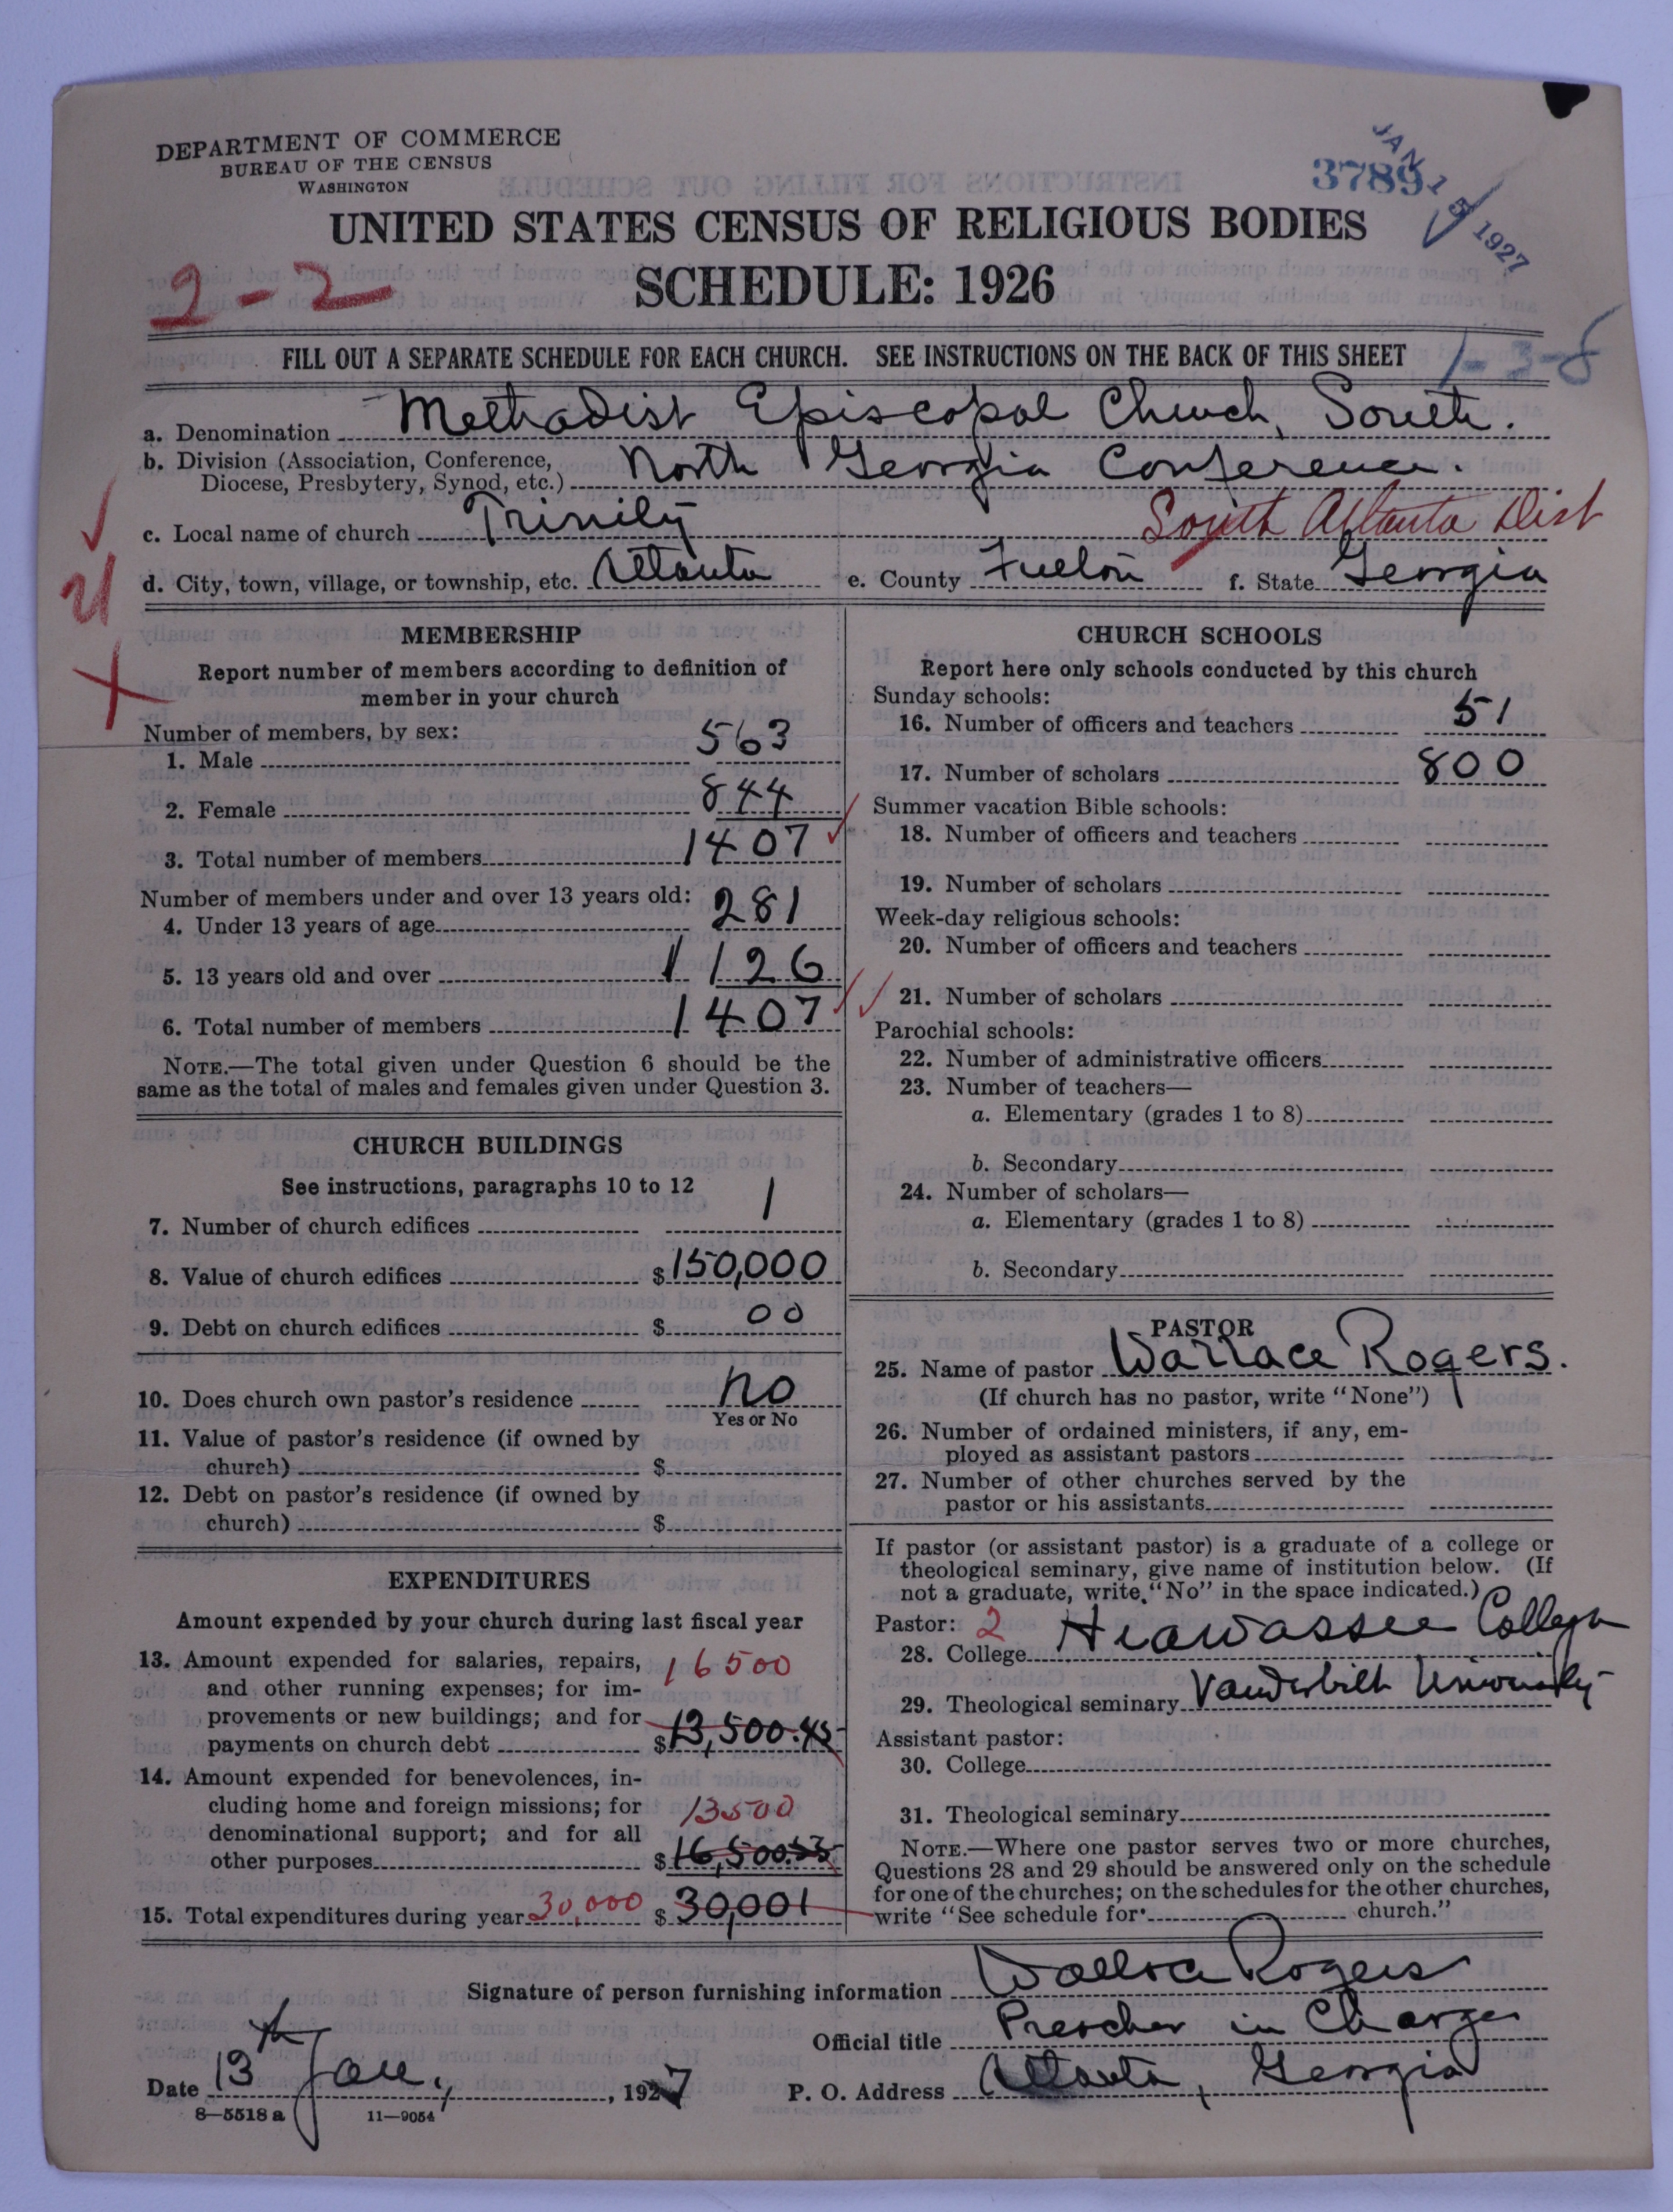 DEPARTMENT OF COMMERCE
BUREAU OF THE CENSUS
WASHINGTON
37891
JAN 15 1927
UNITED STATES CENSUS OF RELIGIOUS BODIES
SCHEDULE: 1926
2-2
FILL OUT A SEPARATE SCHEDULE FOR EACH CHURCH. SEE INSTRUCTIONS ON THE BACK OF THIS SHEET
1-3-8
a. Denomination Methodist Episcopal Church, South.
b. Division (Association, Conference, Diocese, Presbytery, Synod, etc.) North Georgia Conference.
c. Local name of church Trinity South Atlanta Dist
d. City, town, village, or township, etc. Atlanta e. County Fulton f. State Georgia
MEMBERSHIP
Report number of members according to definition of
member in your church
Number of members, by sex:
1. Male 563
2. Female 844
3. Total number of members 1407
Number of members under and over 13 years old:
4. Under 13 years of age 281
5. 13 years old and over 1126
6. Total number of members 1407
NOTE.—The total given under Question 6 should be the
same as the total of males and females given under Question 3.
CHURCH BUILDINGS
See instructions, paragraphs 10 to 12
7. Number of church edifices 1
8. Value of church edifices $150,000
9. Debt on church edifices $ 00
10. Does church own pastor's residence No
Yes or No
11. Value of pastor's residence (if owned by
church) $
12. Debt on pastor's residence (if owned by
church) $
EXPENDITURES
Amount expended by your church during last fiscal year
13. Amount expended for salaries, repairs, 16500
and other running expenses; for im-
provements or new buildings; and for
payments on church debt $13,500.45
14. Amount expended for benevolences, in-
cluding home and foreign missions; for 13500
denominational support; and for all
other purposes $16,500.55
15. Total expenditures during year 30,000 $ 30,001
CHURCH SCHOOLS
Report here only schools conducted by this church
Sunday schools:
16. Number of officers and teachers 51
17. Number of scholars 800
Summer vacation Bible schools:
18. Number of officers and teachers
19. Number of scholars
Week-day religious schools:
20. Number of officers and teachers
21. Number of scholars
Parochial schools:
22. Number of administrative officers
23. Number of teachers—
a. Elementary (grades 1 to 8)
b. Secondary
24. Number of scholars—
a. Elementary (grades 1 to 8)
b. Secondary
PASTOR
25. Name of pastor Wallace Rogers.
(If church has no pastor, write "None")
26. Number of ordained ministers, if any, em-
ployed as assistant pastors
27. Number of other churches served by the
pastor or his assistants
If pastor (or assistant pastor) is a graduate of a college or
theological seminary, give name of institution below. (If
not a graduate, write "No" in the space indicated.)
Pastor: 2
28. College Hiawassee College
29. Theological seminary Vanderbilt University
Assistant pastor:
30. College
31. Theological seminary
NOTE.—Where one pastor serves two or more churches,
Questions 28 and 29 should be answered only on the schedule
for one of the churches; on the schedules for the other churches,
write "See schedule for church."
Signature of person furnishing information Wallace Rogers
Official title Preacher in Charge
Date 13th Jan., 1927 P. O. Address Atlanta, Georgia
8—5518 a 11—9054